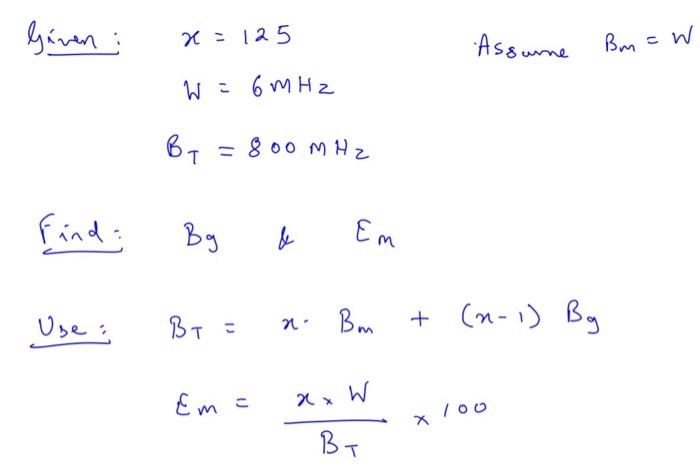 Given: x = 125 Assume Bm = W
W = 6 MHz
BT = 800 MHz
Find: Bg & Em
Use: BT = x. Bm + (x-1) Bg
Em = x × W / BT × 100